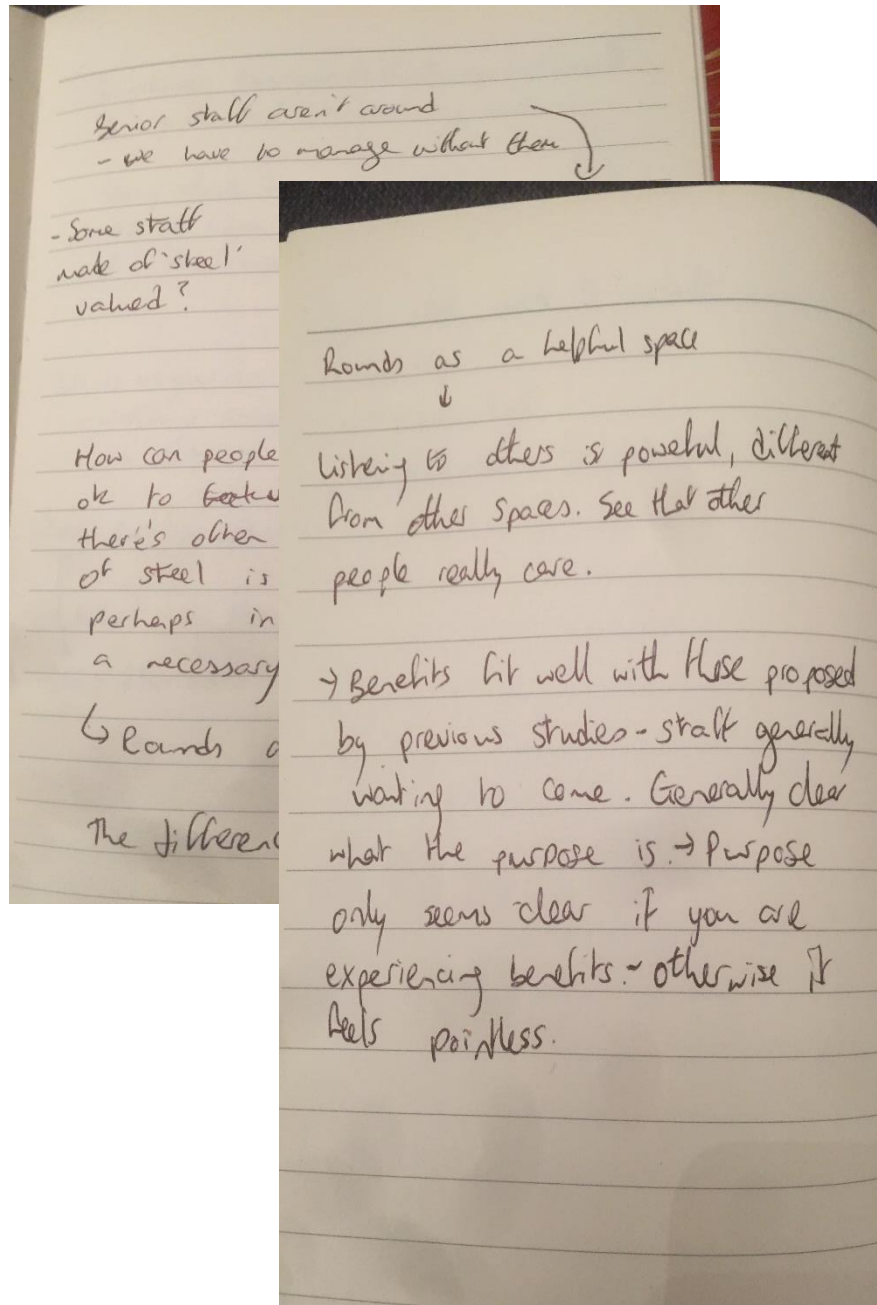 Senior staff aren't around
- we have to manage without them
- Some staff
made of 'steel'
valued?
How can people
ok to
there's often
of steel is
perhaps in
a necessary
↳ Rounds
The differen
Rounds as a helpful space
↓
Listening to others is powerful, different
from other spaces. See that other
people really care.
→ Benefits fit well with those proposed
by previous studies - staff generally
wanting to come. Generally clear
what the purpose is. → Purpose
only seems clear if you are
experiencing benefits. - otherwise it
feels pointless.